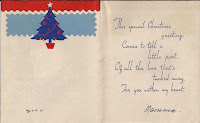 This special Christmas
greeting
Comes to tell a
little part
Of all the love that's
tucked away
For you within my heart.